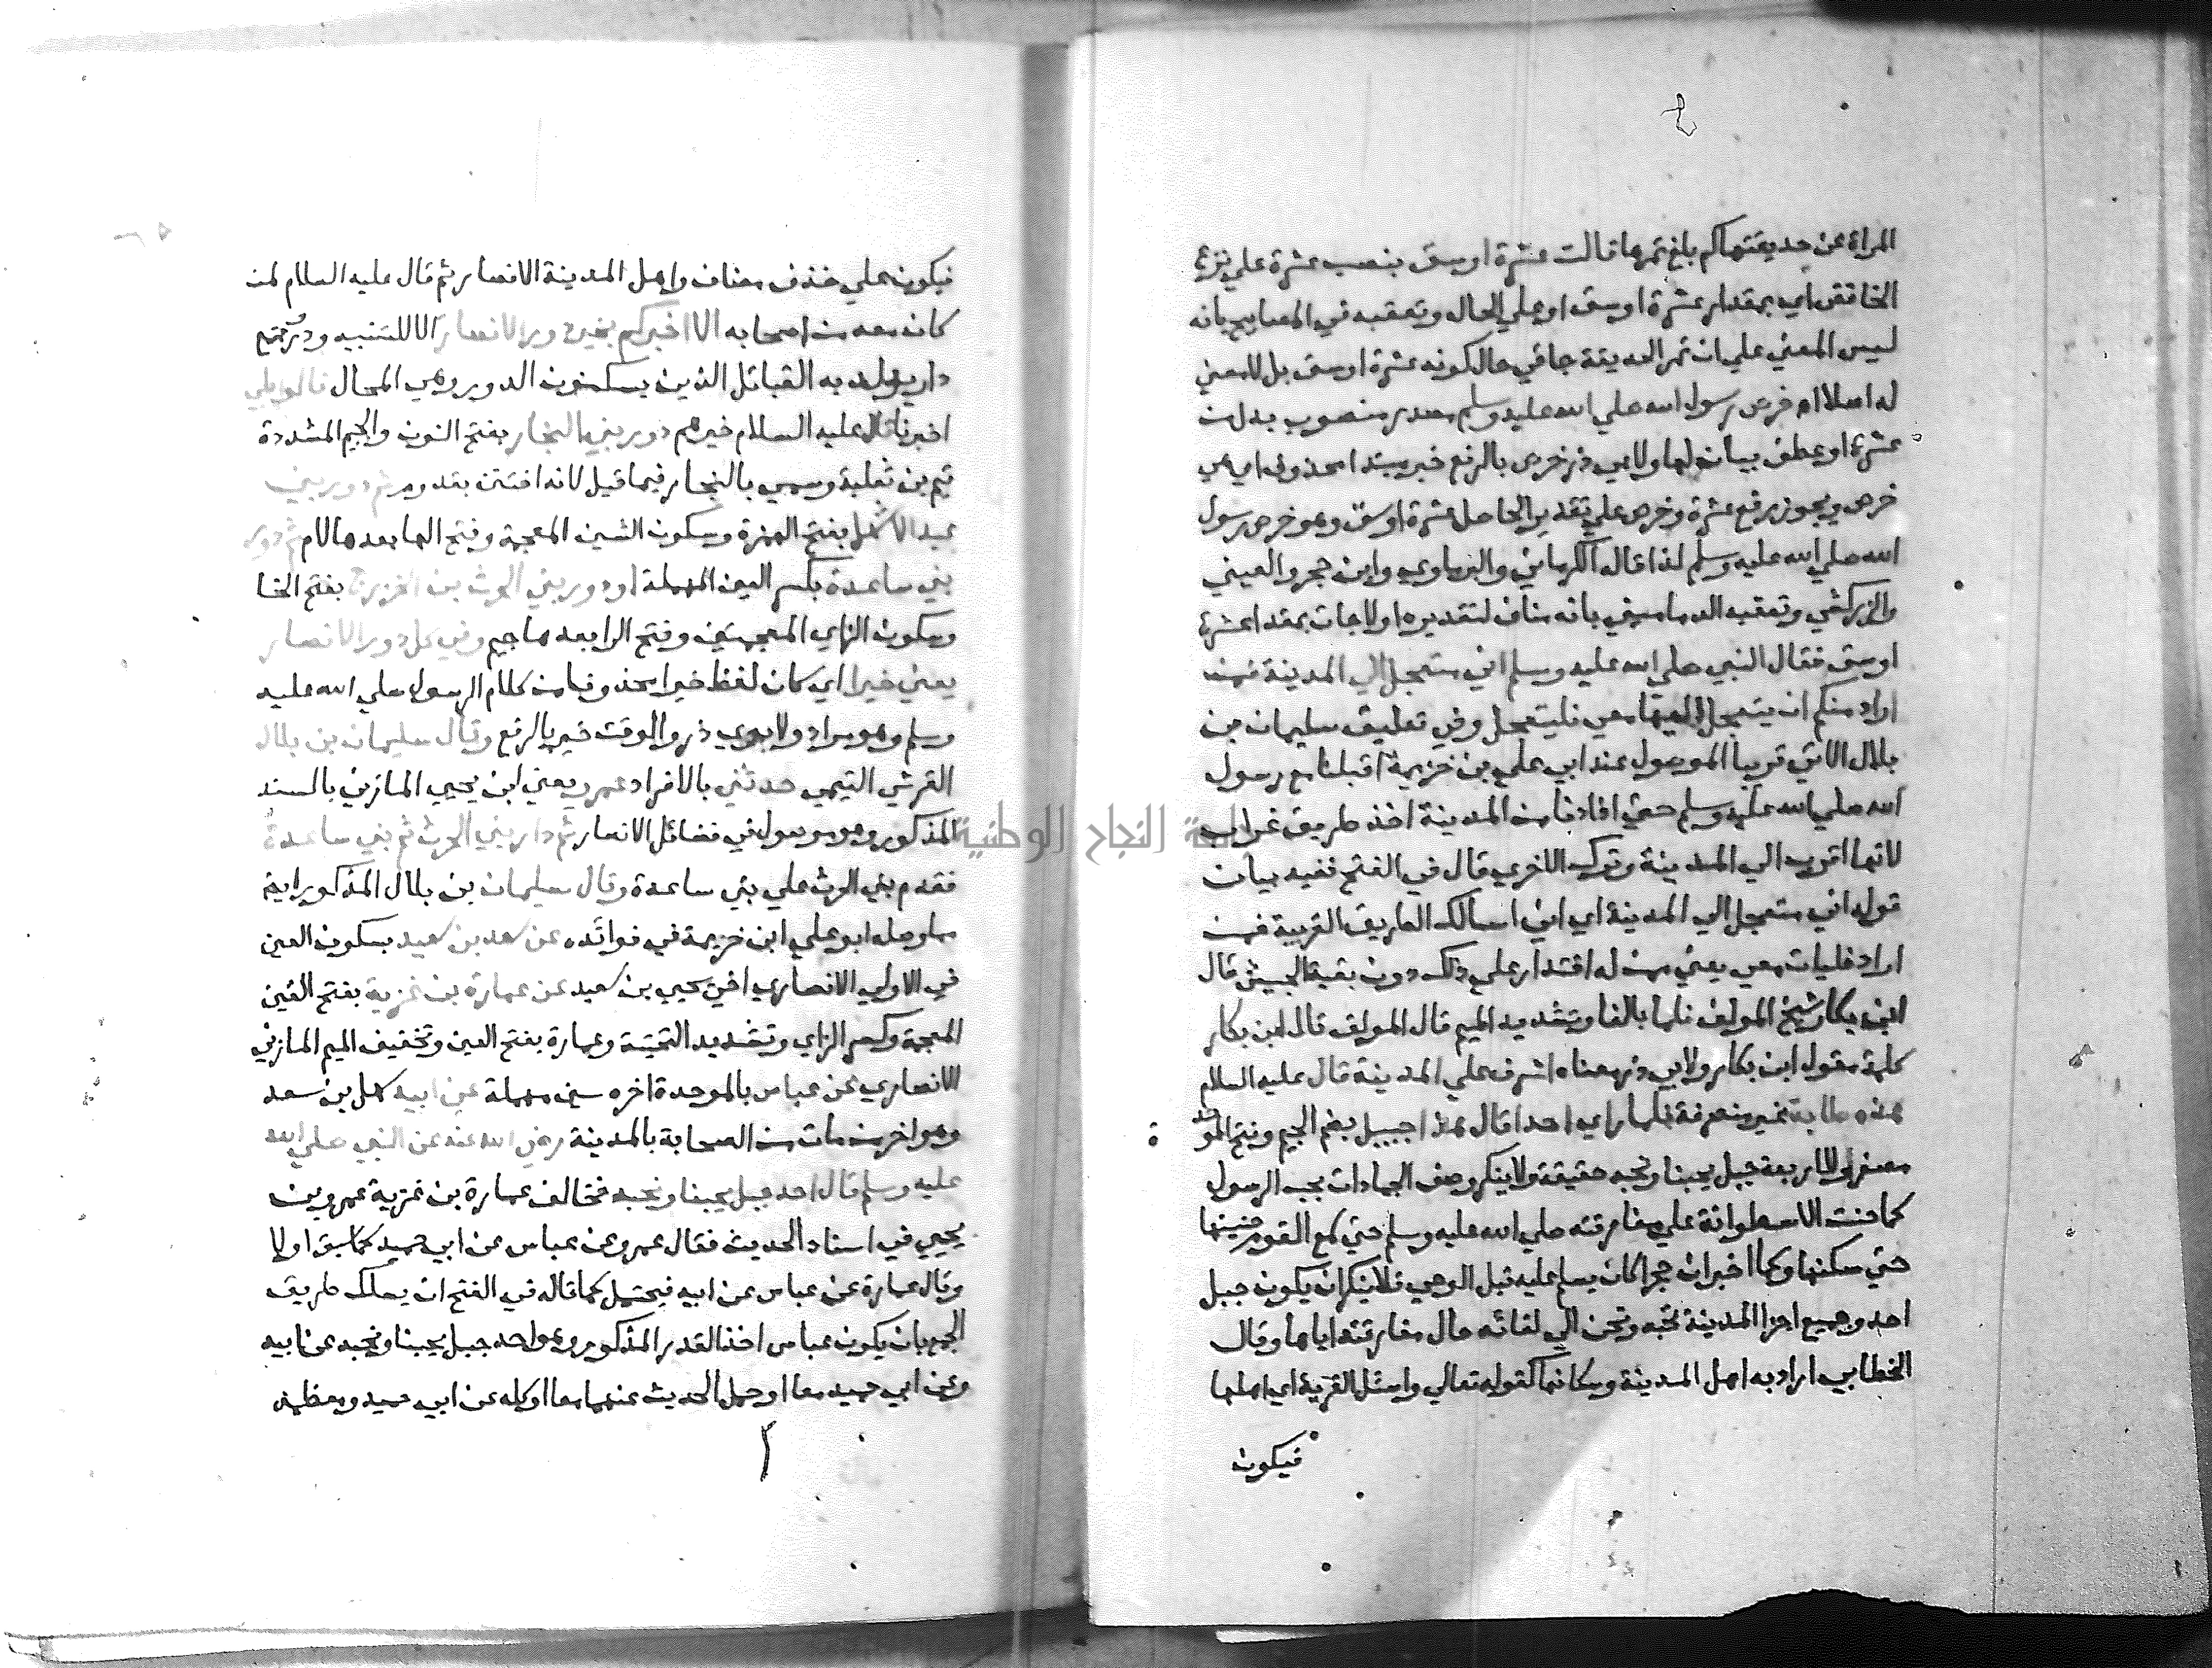 المراة عن حديقتها كم بلغ تمرها قالت عشرة اوسق بنصب عشرة علي نزع
الخافض اي بمقدار عشرة اوسق او علي الحال وتعقبه في المصابيح بانه
ليس المعني علي ان تمر الحديقة جا في حال كونه عشرة اوسق بل لا معني
له اصلا خرص رسول الله صلي الله عليه وسلم مصدر منصوب بدل من
عشرة او عطف بيان لها ولابي ذر خرص بالرفع خبر مبتدا محذوف اي هي
خرص ويجوز رفع عشرة وخرص علي تقدير الحاصل عشرة اوسق وهو خرص رسول
الله صلي الله عليه وسلم لذا قاله الكرماني والبرماوي وابن حجر والعيني
والزركشي وتعقبه الدماميني بانه مناف لتقديره اولا جات بمقدار عشرة
اوسق فقال النبي صلي الله عليه وسلم اني متعجل الي المدينة فمن
اراد منكم ان يتعجل اليها معي فليتعجل وفي تعليق سليمان بن
بلال الاتي قريبا الموصول عند ابي علي بن خزيمة اقبلنا مع رسول
الله صلي الله عليه وسلم حتي اذا دنا من المدينة اخذ طريق غراب
لانها اقرب الي المدينة وترك الاخري قال في الفتح ففيه بيان
قوله اني متعجل الي المدينة اي اني اسالك الطريق القريبة فمن
اراد فليات معي يعني ممن له اقتدار علي ذلك دون بقية الجيش قال
ابن بكار شيخ المولف فلما بالفا وتشديد الميم قال المولف قال ابن بكار
كلمة مقول ابن بكار ولابي ذر معناه اشرف علي المدينة قال عليه السلام
هذه طابة غير منصرفة فلما راي احدا قال هذا جبيل بضم الجيم وفتح الموحدة
مصغرا للاربعة جبل يحبنا ونحبه حقيقة ولا ينكر وصف الجمادات بحب الرسول
كما حنت الاسطوانة علي مفارقته صلي الله عليه وسلم حتي سمع القوم حنينها
حتي سكنها وكما اخبر ان حجرا كان يسلم عليه قبل الوحي فلا ينكر ان يكون جبل
احد وجميع اجزا المدينة تحبه وتحن الي لقائه حال مفارقته اياها وقال
الخطابي اراد به اهل المدينة وسكانها كقوله تعالي واسئل القرية اي اهلها
فيكون
فيكون علي حذف مضاف واهل المدينة الانصار ثم قال عليه السلام لمن
كان معه من اصحابه الا اخبركم بخير دور الانصار الا للتنبيه ودور جمع
دار يريد به القبائل الذين يسكنون الدور وهي المحال قالوا بلي
اخبرنا قال عليه السلام خيرهم دور بني النجار بفتح النون والجيم المشددة
تيم بن ثعلبة وسمي بالنجار فيما قيل لانه اختتن بقدوم ثم دور بني
عبد الاشهل بفتح الهمزة وسكون الشين المعجمة وفتح الها بعدها لام ثم دور
بني ساعدة بكسر العين المهملة او دور بني الحرث بن الخزرج بفتح الخا
وسكون الزاي المعجمتين وفتح الرا بعدها جيم وفي كل دور الانصار
يعني خيرا اي كان لفظ خيرا محذوفا من كلام الرسول صلي الله عليه
وسلم وهو مراد ولابوي ذر والوقت خير بالرفع وقال سليمان بن بلال
القرشي التيمي حدثني بالافراد عمرو يعني ابن يحيي المازني بالسند
المذكور وهو موصول في فضائل الانصار ثم دار بني الحرث ثم بني ساعدة
فقدم بني الحرث علي بني ساعدة وقال سليمان بن بلال المذكور ايضا
مما وصله ابو علي ابن خزيمة في فوائده عن سعد بن سعيد بسكون العين
في الاولي الانصاري اخي يحيي بن سعيد عن عمارة بن غزية بفتح الغين
المعجمة وكسر الزاي وتشديد التحتية وعمارة بفتح العين وتخفيف الميم المازني
الانصاري عن عباس بالموحدة اخره سين مهملة عن ابيه سهل بن سعد
وهو اخر من مات من الصحابة بالمدينة رضي الله عنه عن النبي صلي الله
عليه وسلم قال احد جبل يحبنا ونحبه فخالف عمارة بن غزية عمرو بن
يحيي في اسناد الحديث فقال عمرو عن عباس عن ابي حميد كما سبق اولا
وقال عمارة عن عباس عن ابيه فيحتمل كما قاله في الفتح ان يسلك طريق
الجمع بان يكون عباس اخذ القدر المذكور وهو احد جبل يحبنا ونحبه عن ابيه
وعن ابي حميد معا او حمل الحديث عنهما معا او كله عن ابي حميد ومعظمه
جامعة النجاح الوطنية